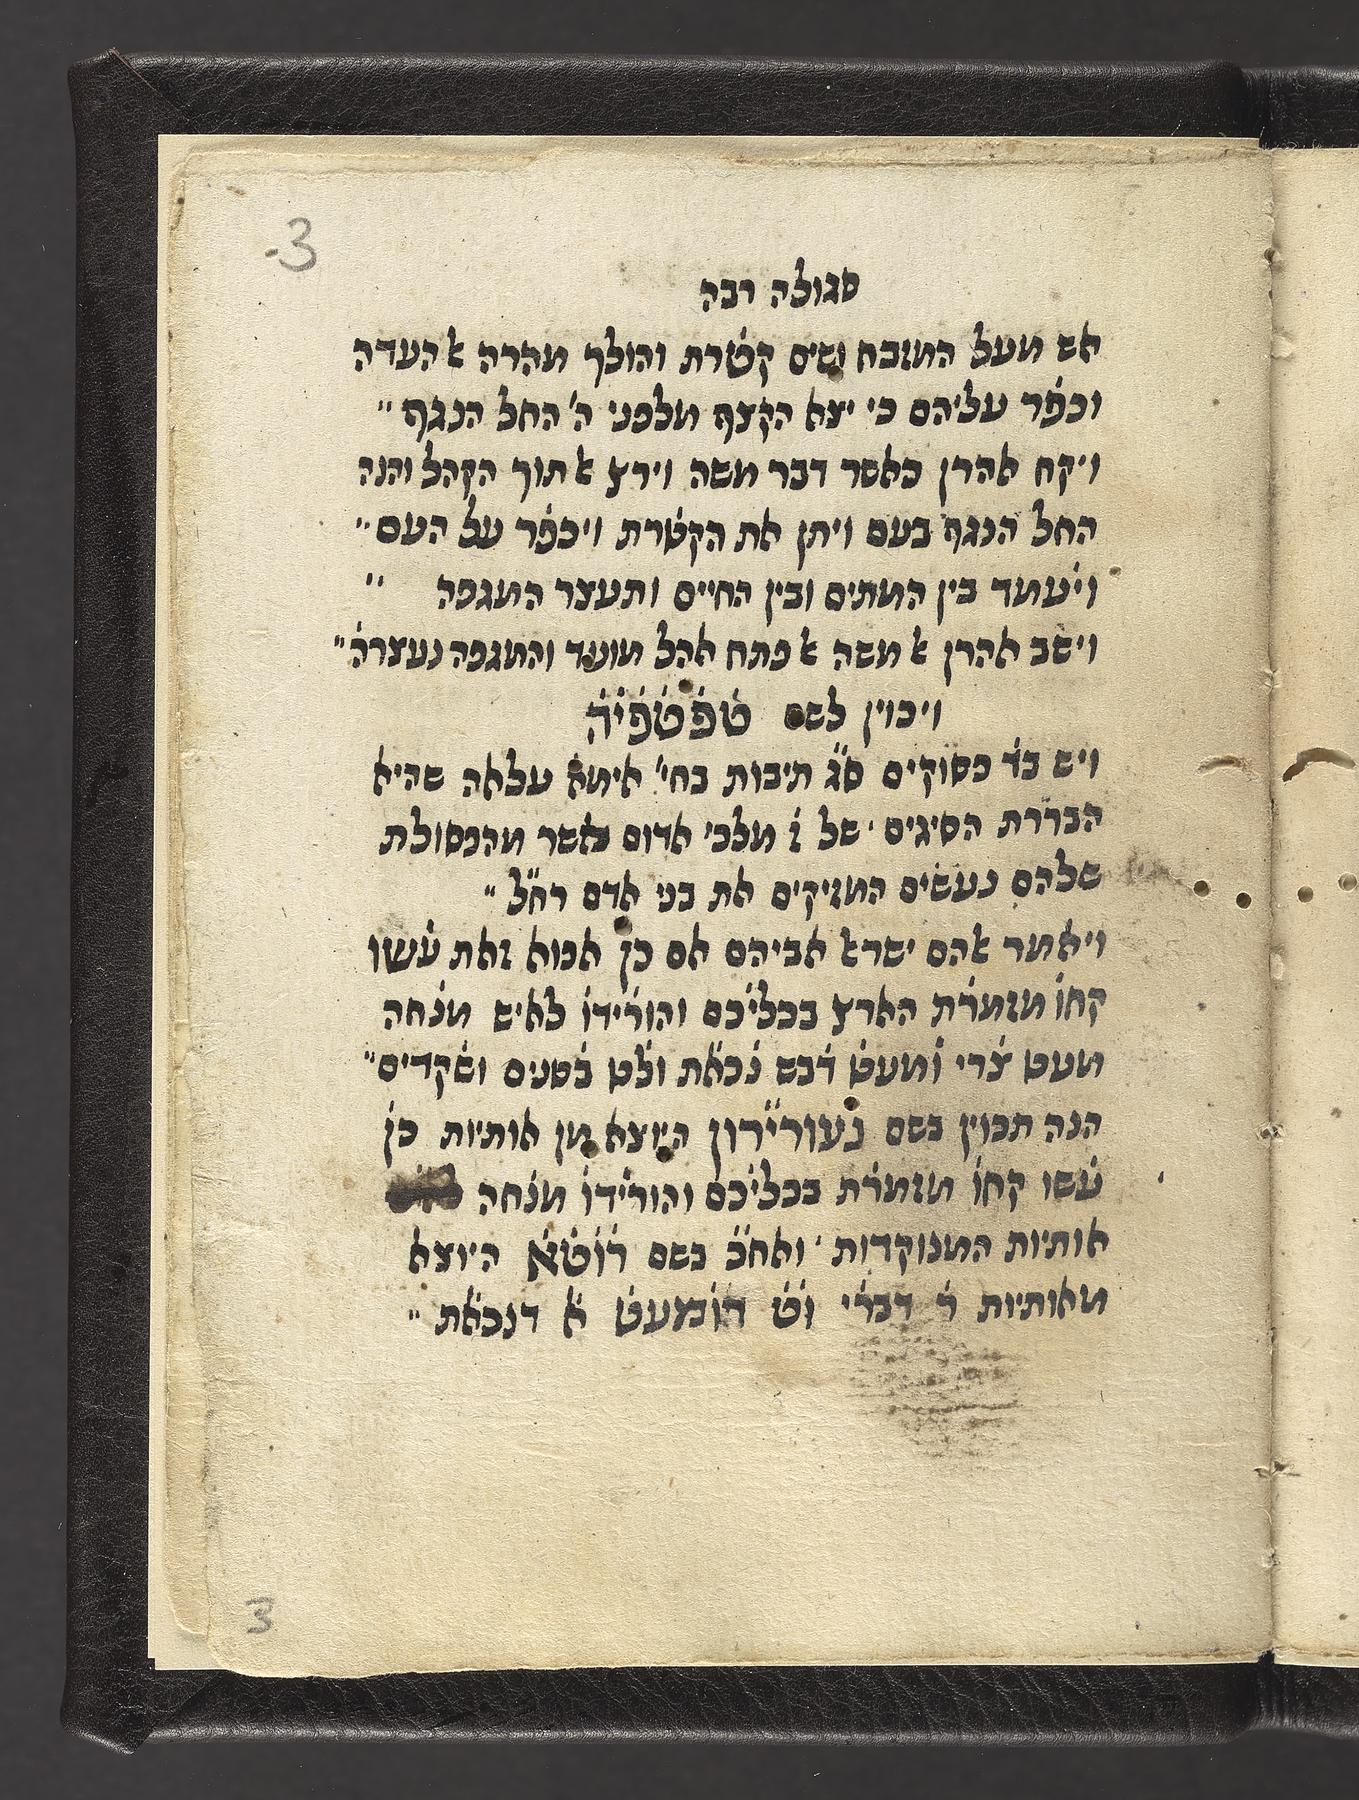 3
סגולה רבה
אש מעל המזבח ושים קטרת והולך מהרה אל העדה
וכפר עליהם כי יצא הקצף מלפני ה' החל הנגף"
ויקח אהרן כאשר דבר משה וירץ אל תוך הקהל והנה
החל הנגף בעם ויתן את הקטרת ויכפר על העם"
ויעמד בין המתים ובין החיים ותעצר המגפה "
וישב אהרן אל משה אל פתח אהל מועד והמגפה נעצרה"
ויכוין לשם טפטפיה
ויש בד' פסוקים ס"ג תיבות בחי' אימא עלאה שהיא
הבררת הסיגים של ז' מלכי אדום כאשר מהפסולת
שלהם נעשים המזיקים את בני אדם רח"ל"
ויאמר אלהם ישראל אביהם אם כן אפוא זאת עשו
קחו מזמרת הארץ בכליכם והורידו לאיש מנחה
מעט צרי ומעט דבש נכאת ולט בטנים ושקדים"
הנה תכוין בשם נעוריירון היוצא מן אותיות כן
עשו קחו מזמרת בכליכם והורידו מנחה
אותיות המנוקדות ואח"כ בשם רוטא היוצא
מאותיות ר דברי וט דומעט א דנכאת"
3